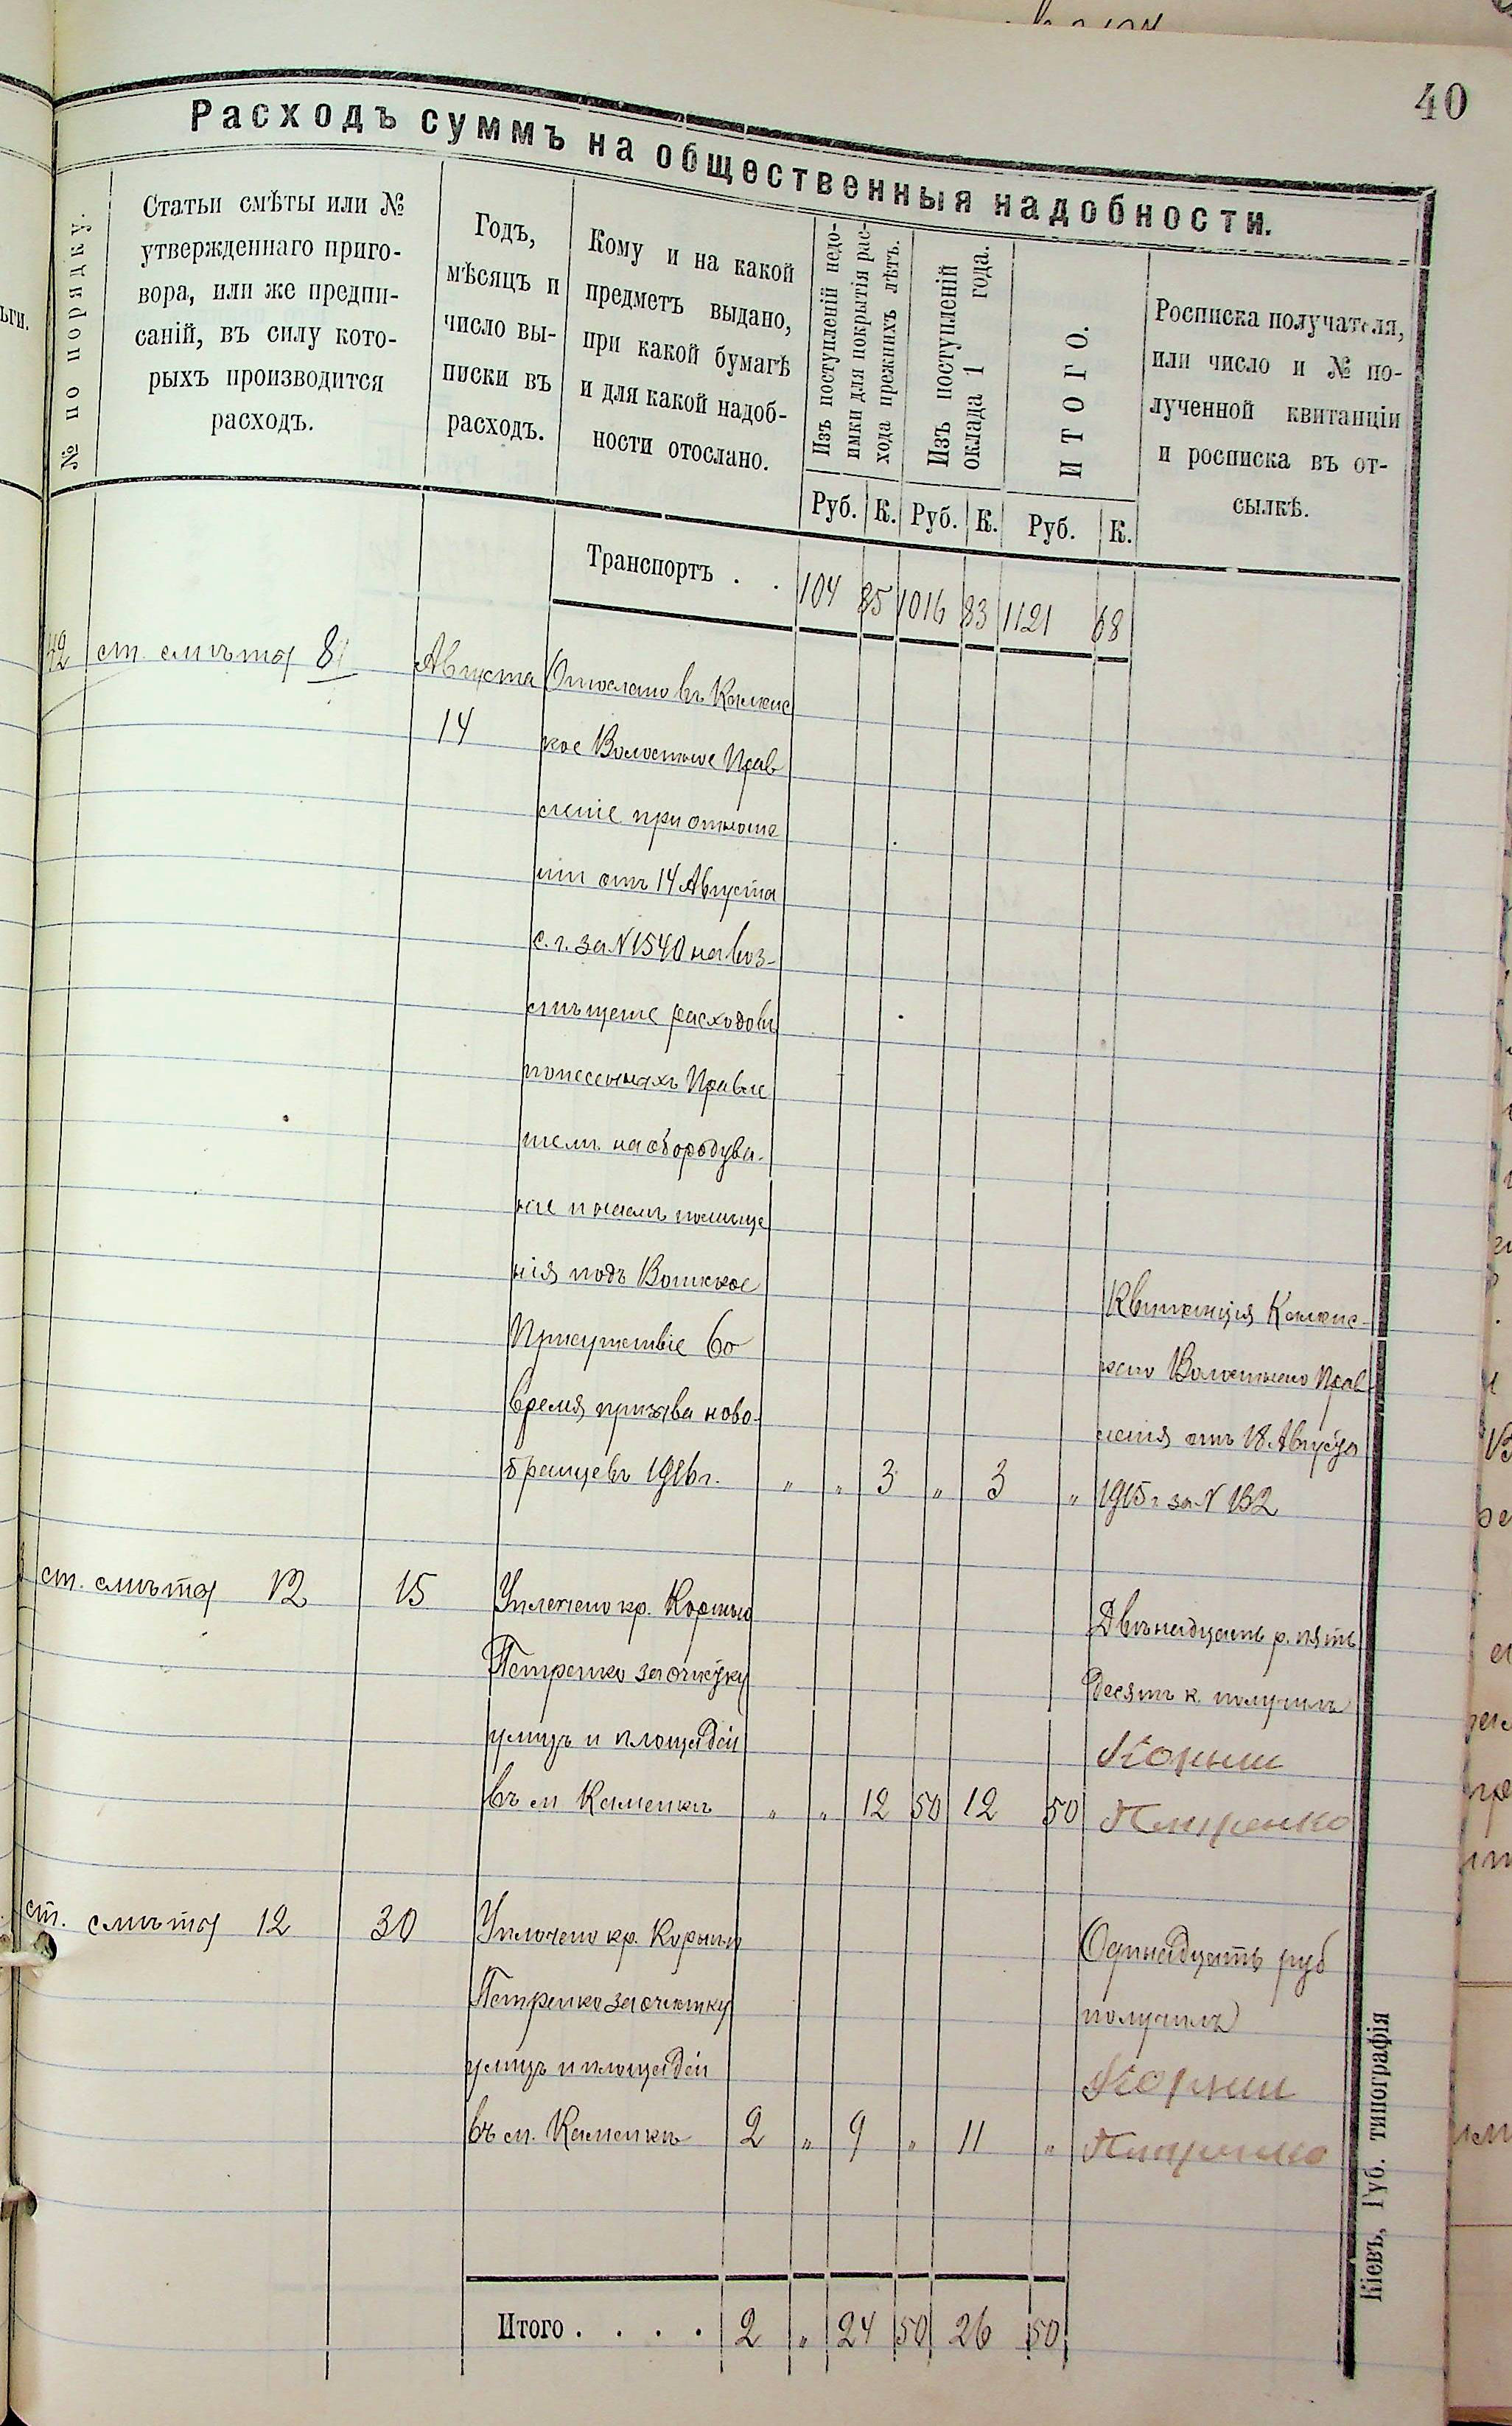 40
Расходъ суммъ на общественныя надобности.
№ по порядку.
Статьи смѣты или №
утвержденнаго приго-
вора, или же предпи-
саній, въ силу кото-
рыхъ производится
расходъ.
Годъ,
мѣсяцъ и
число вы-
писки въ
расходъ.
Кому и на какой
предметъ выдано,
при какой бумагѣ
и для какой надоб-
ности отослано.
Изъ поступленій недо-
имки для покрытія рас-
хода прежнихъ лѣтъ.
Изъ поступленій
оклада 1 года.
ИТОГО.
Росписка получателя,
или число и № по-
лученной квитанціи
и росписка въ от-
сылкѣ.
Руб. К. Руб. К. Руб. К.
Транспортъ . . 104 85 1016 83 1121 68
42 ст. смѣты 8 Августа Отослано въ Каменс
14 кое Волостное Прав
леніе при отноше
ніи отъ 14 Августа
с. г. за N 1540 на воз-
мѣщеніе расходовъ
понесенныхъ Правле
ніемъ на оборудова-
ніе и наемъ помѣще
нія подъ Воинское
Присутствіе во
время призыва ново-
бранцевъ 1916 г. „ „ 3 „ 3 „
Квитанція Каменс-
каго Волостного Прав
ленія отъ 18 Августа
1915 г за N 132
ст. смѣты 12 15 Уплачено кр. Корнію
Петренко за очистку
улицъ и площадей
въ м. Каменкѣ „ „ 12 50 12 50
Двѣнадцать р. пять
десятъ к. получилъ
Корній
Петренко
ст. смѣты 12 30 Уплочено кр. Корнію
Петренко за очистку
улицъ и площадей
въ м. Каменкѣ 2 „ 9 „ 11 „
Одинадцать руб
получилъ
Корній
Петренко
Итого . . . . 2 „ 24 50 26 50
Кіевъ, Губ. типографія